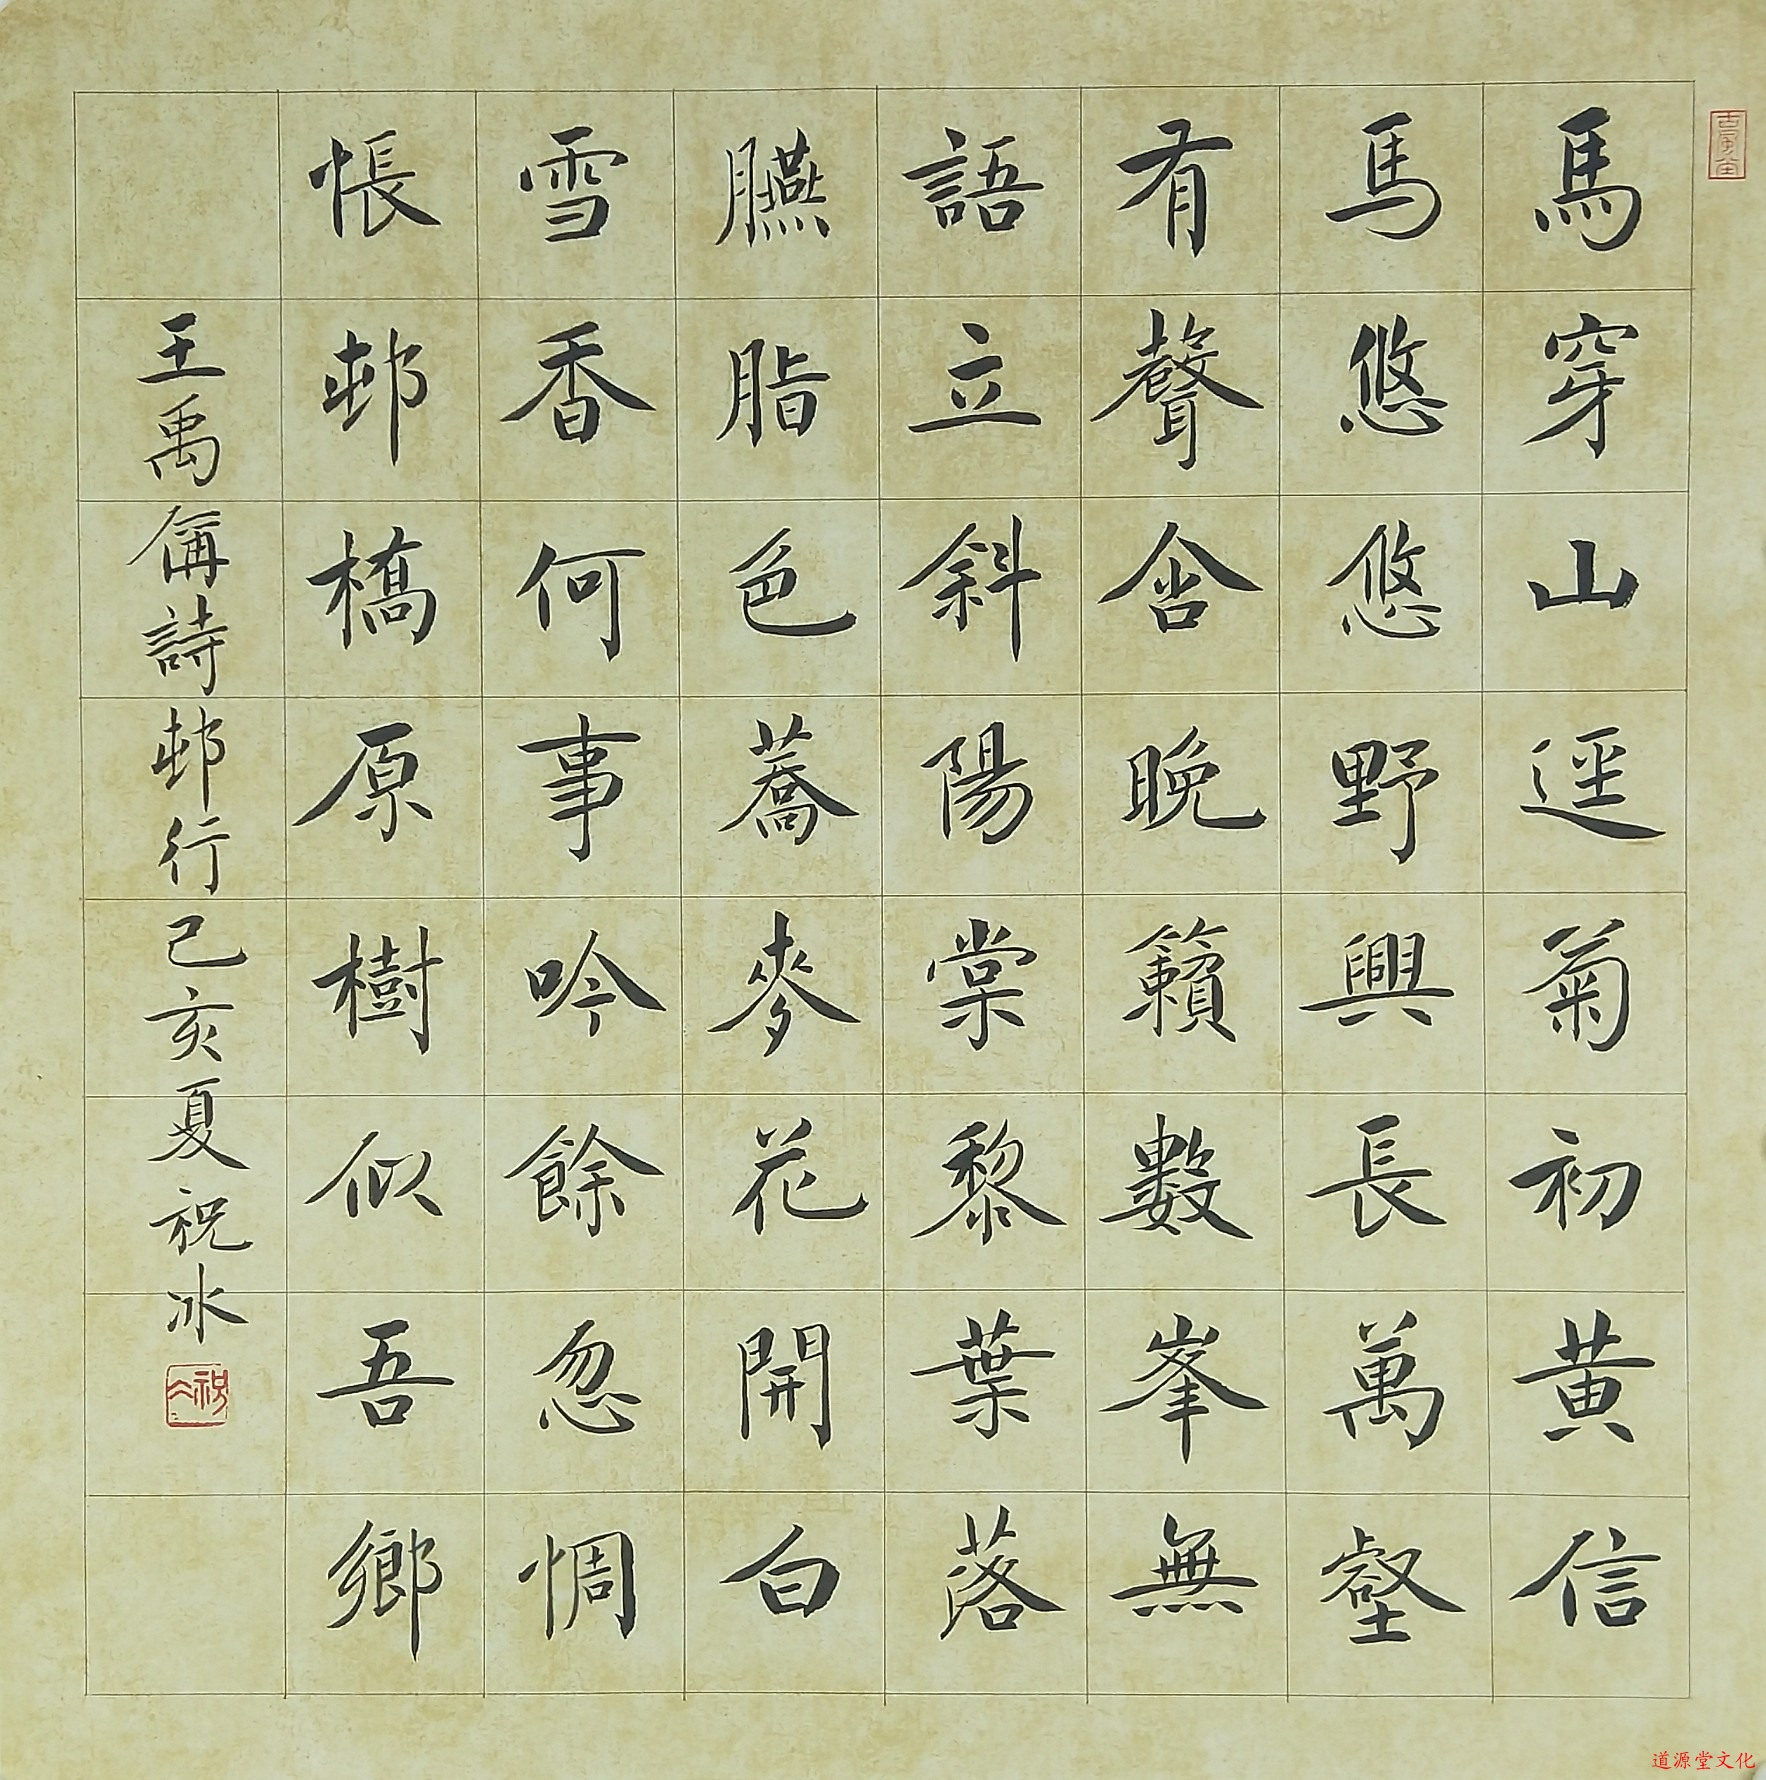 馬穿山逕菊初黄信
馬悠悠野興長萬壑
有聲含晚籟數峯無
語立斜陽棠黎葉落
臙脂色蕎麥花開白
雪香何事吟餘忽惆
悵邨橋原樹似吾鄉
王禹偁詩邨行己亥夏祝冰
道源堂文化